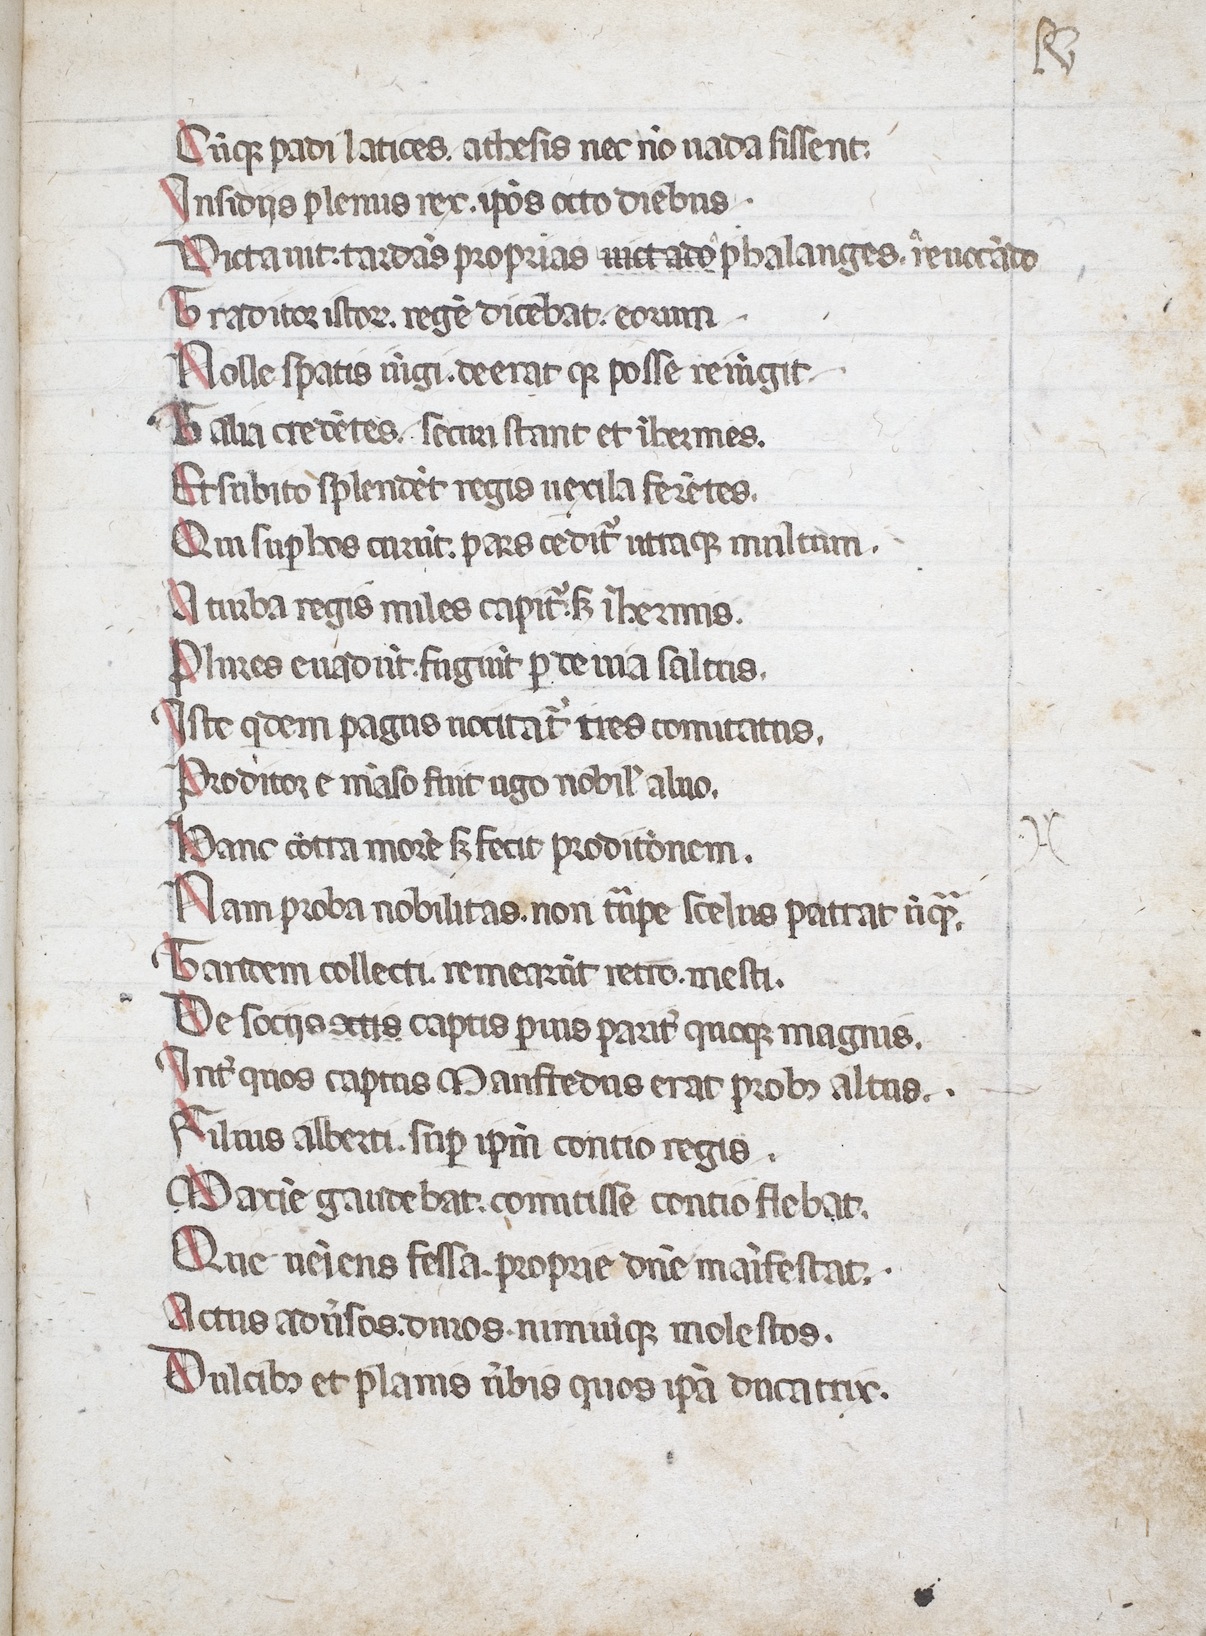 Cūqꝫ padi latices. athesis nec nō uada sissent.
Insidijs plenus rex. ipōs octo diebus
Dictauit. tardās proprias uictādo phalanges. reuocādo
Traditor istoꝝ. regē dicebat. eorum
Nolle spatis iūgi. deerat qꝫ posse reiūgit
Talia credētes. securi stant et īhermes.
Et subito splendēt regis uexila ferētes.
Qui sup̱ hos currūt. pars ceditᷣ utraqꝫ multum.
A turba regis miles capitᷣ. sꝫ īhermis.
Plures euadūt. fugiūt p̱ deuia saltus.
Iste qͥdem pagus uocitatᷣ tres comitatus.
Proditor e māso fuit ugo nobilᷤ aluo.
Hanc cōtra morē sꝫ fecit proditōnem.
Nam proba nobilitas. non tūpe scelus patrat ūqᷓꝫ.
Tandem collecti. remearūt retro. mesti.
De socijs octis captis p̱uis paritᷣ quoqꝫ magnis.
Intᷣ quos captus Manfredus erat probꝫ altus.
Filius alberti. sup̱ ipm̄ contio regis.
Maxīe gaudebat. comitisse contio flebat.
Que ueīens fessa. proprie dn̄e maīfestat.
Actus aduīsos. duros. nimiūqꝫ molestos.
Dulcibꝫ et planis ūbis quos ipā ducatrix.